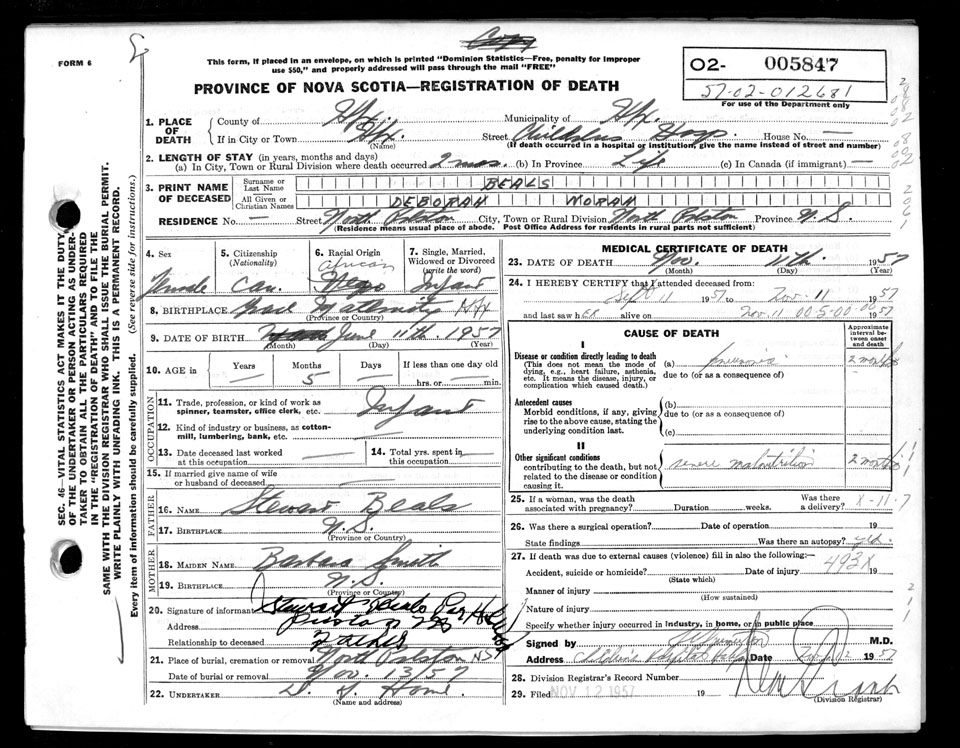 Copy
FORM 6
This form, if placed in an envelope, on which is printed "Dominion Statistics—Free, penalty for improper
use $50," and properly addressed will pass through the mail "FREE"
O2- 005847
57-02-012681
For use of the Department only
PROVINCE OF NOVA SCOTIA—REGISTRATION OF DEATH
1. PLACE OF DEATH
County of Hfx. Municipality of Hfx.
If in City or Town Hfx. (Name) Street Childrens Hosp. House No. —
(If death occurred in a hospital or institution, give the name instead of street and number)
2. LENGTH OF STAY (in years, months and days)
(a) In City, Town or Rural Division where death occurred 2 mos. (b) In Province Life (c) In Canada (if immigrant) —
3. PRINT NAME OF DECEASED
Surname or Last Name BEALS
All Given or Christian Names DEBORAH NORAH
RESIDENCE No. — Street North Preston City, Town or Rural Division North Preston Province N.S.
(Residence means usual place of abode. Post Office Address for residents in rural parts not sufficient)
4. Sex Female
5. Citizenship (Nationality) Can.
6. Racial Origin African Negro
7. Single, Married, Widowed or Divorced (write the word) Infant
8. BIRTHPLACE Grace Maternity Hfx
(Province or County)
9. DATE OF BIRTH June 11th. 1957
(Month) (Day) (Year)
10. AGE in Years — Months 5 Days — If less than one day old
hrs. or min.
OCCUPATION
11. Trade, profession, or kind of work as spinner, teamster, office clerk, etc. Infant
12. Kind of industry or business, as cotton-mill, lumbering, bank, etc. —
13. Date deceased last worked at this occupation —
14. Total yrs. spent in this occupation —
15. If married give name of wife or husband of deceased —
FATHER
16. NAME Stewart Beals
17. BIRTHPLACE N.S.
(Province or County)
MOTHER
18. MAIDEN NAME Barbara Smith
19. BIRTHPLACE N.S.
(Province or County)
20. Signature of informant Stewart Beals
Address Preston
Relationship to deceased Father
21. Place of burial, cremation or removal North Preston NS
Date of burial or removal Nov. 13/57
22. UNDERTAKER
(Name and address)
MEDICAL CERTIFICATE OF DEATH
23. DATE OF DEATH Nov. 11th. 1957
(Month) (Day) (Year)
24. I HEREBY CERTIFY that I attended deceased from:
Sept 11 1957 to Nov-11 1957
and last saw h er alive on Nov. 11 1957
CAUSE OF DEATH
Approximate interval between onset and death
I
Disease or condition directly leading to death
(This does not mean the mode of dying, e.g., heart failure, asthenia, etc. It means the disease, injury, or complication which caused death.)
(a) pneumonia 2 months
due to (or as a consequence of)
Antecedent causes
Morbid conditions, if any, giving rise to the above cause, stating the underlying condition last.
(b)
due to (or as a consequence of)
(c)
II
Other significant conditions
contributing to the death, but not related to the disease or condition causing it.
severe malnutrition 2 months
25. If a woman, was the death associated with pregnancy? Duration weeks. Was there a delivery?
X-11-7
26. Was there a surgical operation? Date of operation 19
State findings Was there an autopsy? yes.
27. If death was due to external causes (violence) fill in also the following:—
493X
Accident, suicide or homicide? Date of injury 19
(State which)
Manner of injury
(How sustained)
Nature of injury
Specify whether injury occurred in industry, in home, or in public place
Signed by M.D.
Address Children's Hospital Date Nov 12 1957
28. Division Registrar's Record Number
29. Filed NOV 12 1957 19
(Division Registrar)
SEC. 46—VITAL STATISTICS ACT MAKES IT THE DUTY
OF THE UNDERTAKER OR PERSON ACTING AS UNDER-
TAKER TO OBTAIN ALL THE PARTICULARS REQUIRED
IN THE "REGISTRATION OF DEATH" AND TO FILE THE
SAME WITH THE DIVISION REGISTRAR WHO SHALL ISSUE THE BURIAL PERMIT.
WRITE PLAINLY WITH UNFADING INK. THIS IS A PERMANENT RECORD.
Every item of information should be carefully supplied. (See reverse side for instructions.)